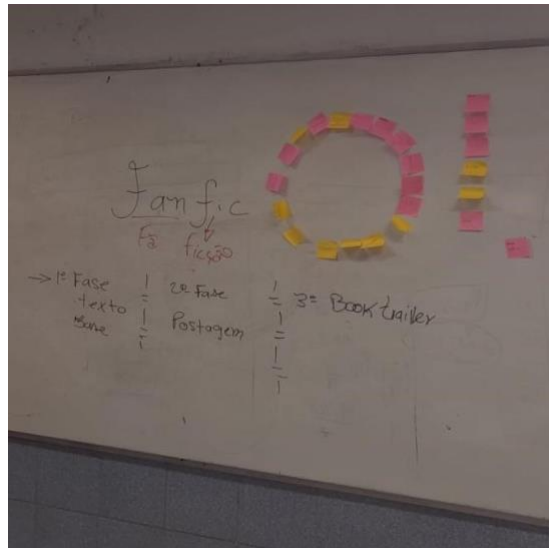 Fanfic
Fã ficção
→ 1ª Fase
texto
Base
2ª Fase
Postagem
3ª Booktrailer